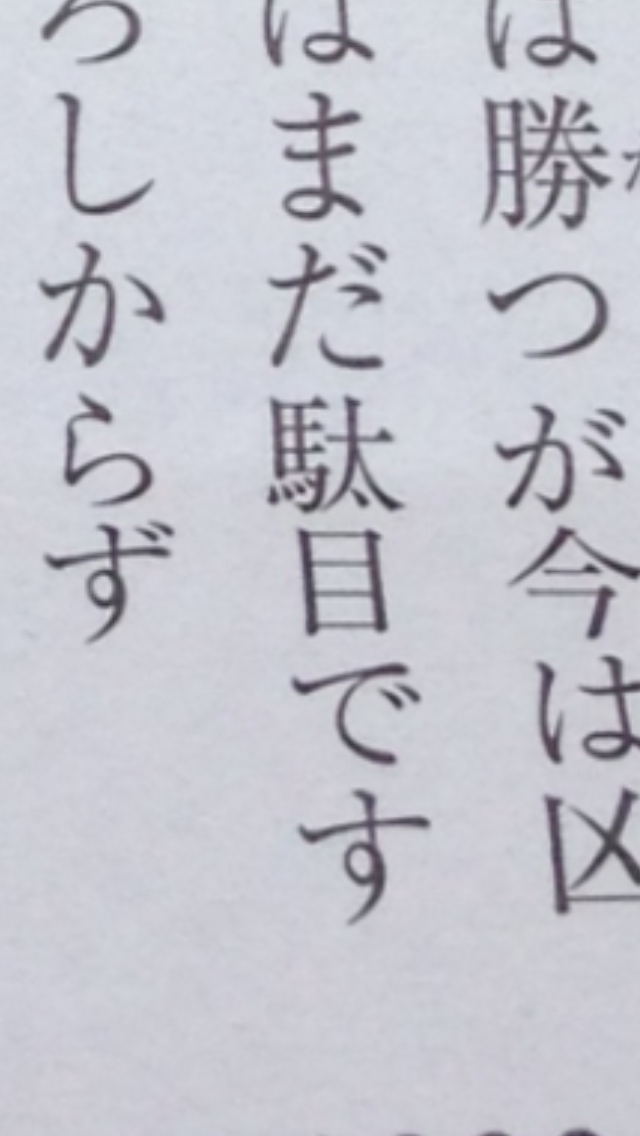 は勝つが今は凶
はまだ駄目です
ろしからず